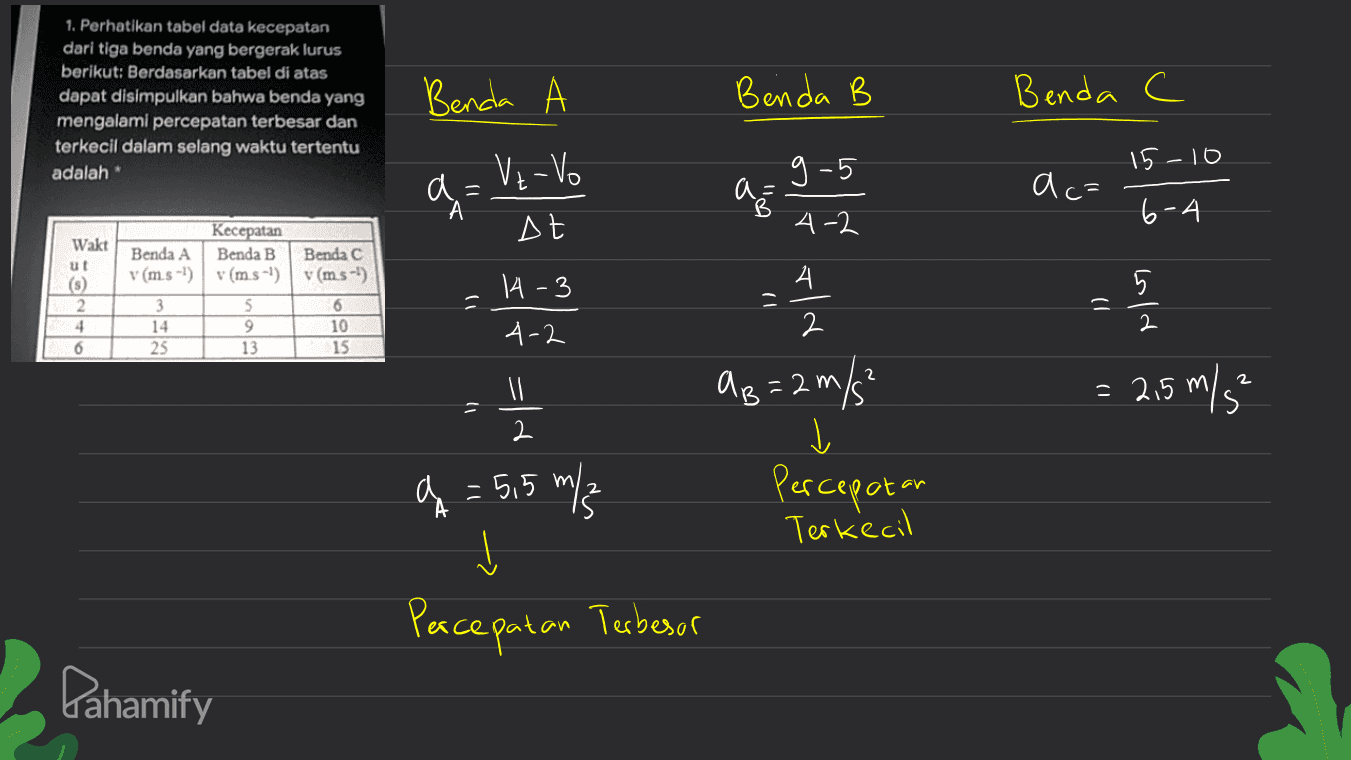 1. Perhatikan tabel data kecepatan
dari tiga benda yang bergerak lurus
berikut: Berdasarkan tabel di atas
dapat disimpulkan bahwa benda yang
mengalami percepatan terbesar dan
terkecil dalam selang waktu tertentu
adalah *
Kecepatan
Wakt ut (s) Benda A v (m.s-1) Benda B v (m.s-1) Benda C v (m.s-1)
2 3 5 6
4 14 9 10
6 25 13 15
Benda A
a_A = (Vt - Vo) / Δt
= (14 - 3) / (4 - 2)
= 11 / 2
a_A = 5,5 m/s²
↓
Percepatan Terbesar
Benda B
a_B = (9 - 5) / (4 - 2)
= 4 / 2
a_B = 2 m/s²
↓
Percepatan
Terkecil
Benda C
a_C = (15 - 10) / (6 - 4)
= 5 / 2
= 2,5 m/s²
Pahamify